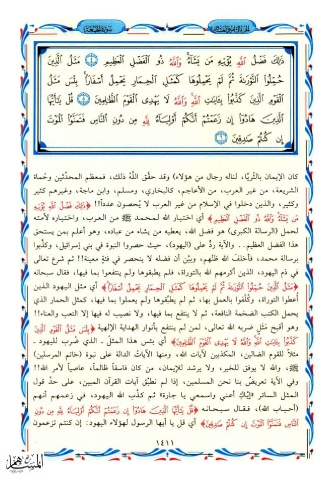 ذَٰلِكَ فَضْلُ ٱللَّهِ يُؤْتِيهِ مَن يَشَآءُ وَٱللَّهُ ذُو ٱلْفَضْلِ ٱلْعَظِيمِ ۝٤ مَثَلُ ٱلَّذِينَ
حُمِّلُوا۟ ٱلتَّوْرَىٰةَ ثُمَّ لَمْ يَحْمِلُوهَا كَمَثَلِ ٱلْحِمَارِ يَحْمِلُ أَسْفَارًۢا بِئْسَ مَثَلُ
ٱلْقَوْمِ ٱلَّذِينَ كَذَّبُوا۟ بِـَٔايَٰتِ ٱللَّهِ وَٱللَّهُ لَا يَهْدِى ٱلْقَوْمَ ٱلظَّٰلِمِينَ ۝٥ قُلْ يَٰٓأَيُّهَا
ٱلَّذِينَ هَادُوٓا۟ إِن زَعَمْتُمْ أَنَّكُمْ أَوْلِيَآءُ لِلَّهِ مِن دُونِ ٱلنَّاسِ فَتَمَنَّوُا۟ ٱلْمَوْتَ
إِن كُنتُمْ صَٰدِقِينَ ۝٦
كان الإيمان بالثُّريَّا، لناله رجال من هؤلاء) وقد حقَّق اللَّهُ ذلك، فمعظم المحدِّثين وحُماة
الشريعة، من غير العرب، من الأعاجم، كالبخاري، ومسلم، وابن ماجة، وغيرهم كثير
وكثير، والذين دخلوا في الإسلام من غير العرب لا يُحصون عدداً!! ﴿ذَٰلِكَ فَضْلُ اللَّهِ يُؤْتِيهِ
مَن يَشَآءُ وَاللَّهُ ذُو الْفَضْلِ الْعَظِيمِ﴾ أي اختيار الله لمحمد ﷺ من العرب، واختياره لأمته
لحمل (الرسالة الكبرى) هو فضل الله، يعطيه من يشاء من عباده، وهو أعلم بمن يستحق
هذا الفضل العظيم.. والآية ردٌّ على (اليهود) حيث حصروا النبوة في بني إسرائيل، وكذَّبوا
برسالة محمد، فأخلف الله ظنَّهم، وبيَّن أن فضله لا ينحصر في فئةٍ معينة!! ثم شرع تعالى
في ذم اليهود، الذين أكرمهم الله بالتوراة، فلم يطبقوها ولم ينتفعوا بما فيها، فقال سبحانه
﴿مَثَلُ الَّذِينَ حُمِّلُوا التَّوْرَاةَ ثُمَّ لَمْ يَحْمِلُوهَا كَمَثَلِ الْحِمَارِ يَحْمِلُ أَسْفَارًا﴾ أي مثل اليهود الذين
أعطوا التوراة، وكُلِّفوا بالعمل بها، ثم لم يطبِّقوها ولم يعملوا بما فيها، كمثل الحمار الذي
يحمل الكتب الضخمة النافعة، ثم لا ينتفع بما فيها، ولا نصيب له فيها إلا التعب والعناء!!
وهو أقبح مَثَلٍ ضربه الله تعالى، لمن لم ينتفع بأنوار الهداية الإلهية ﴿بِئْسَ مَثَلُ الْقَوْمِ الَّذِينَ
كَذَّبُوا بِآيَاتِ اللَّهِ وَاللَّهُ لَا يَهْدِي الْقَوْمَ الظَّالِمِينَ﴾ أي بئس هذا المثل.. الذي ضُرب لليهود..
مثلاً للقوم الضالين، المكذبين لآيات الله، ومنها الآيات الدالة على نبوة (خاتم المرسلين)
ﷺ، والله لا يوفق للخير، ولا يرشد للإيمان، من كان فاسقاً ظالماً، عاصياً لأمر الله!!
وفي الآية تعريضٌ بنا نحن المسلمين، إذا لم نطبِّق آيات القرآن المبين، على حدِّ قول
المثل السائر «إيَّاكِ أعني واسمعي يا جارة» ثم كذَّب الله اليهود، في زعمهم أنهم
(أحباب الله)، فقال سبحانه ﴿قُلْ يَا أَيُّهَا الَّذِينَ هَادُوا إِن زَعَمْتُمْ أَنَّكُمْ أَوْلِيَاءُ لِلَّهِ مِن دُونِ
النَّاسِ فَتَمَنَّوُا الْمَوْتَ إِن كُنتُمْ صَادِقِينَ﴾ أي قل يا أيها الرسول لهؤلاء اليهود: إن كنتم تزعمون
١٤١١